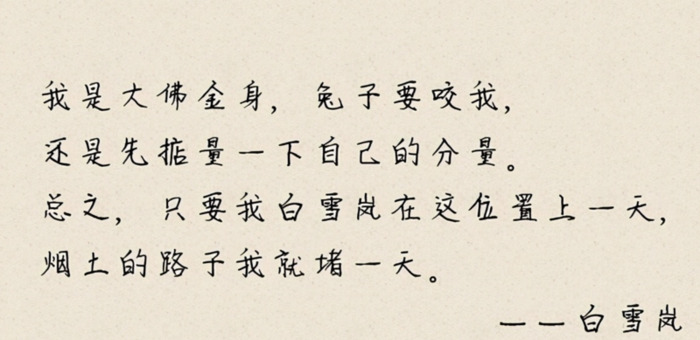 我是大佛金身，兔子要咬我，
还是先掂量一下自己的分量。
总之，只要我白雪岚在这位置上一天，
烟土的路子我就堵一天。
——白雪岚